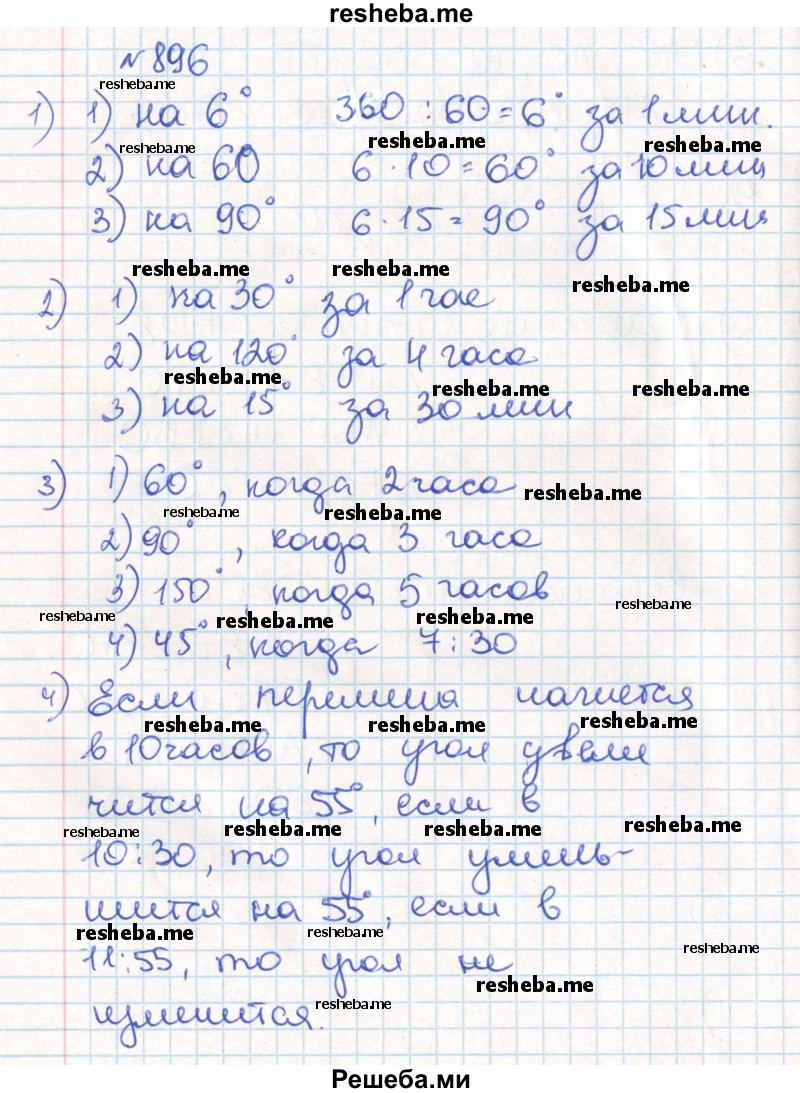 resheba.me
№896
resheba.me
1) 1) на 6° 360 : 60 = 6° за 1 мин.
resheba.me resheba.me resheba.me
2) на 60 6 · 10 = 60° за 10 мин
3) на 90° 6 · 15 = 90° за 15 мин
resheba.me resheba.me resheba.me
2) 1) на 30° за 1 час
2) на 120° за 4 часа
resheba.me resheba.me resheba.me
3) на 15° за 30 мин
3) 1) 60°, когда 2 часа
resheba.me
resheba.me resheba.me
2) 90°, когда 3 часа
3) 150°, когда 5 часов
resheba.me resheba.me resheba.me resheba.me
4) 45°, когда 7:30
4) Если перемена начнется
resheba.me resheba.me resheba.me
в 10 часов, то угол увели
чится на 55°, если в
resheba.me resheba.me resheba.me resheba.me
10:30, то угол умень-
шится на 55°, если в
resheba.me resheba.me
11:55, то угол не
resheba.me
resheba.me
изменится.
resheba.me
Решеба.ми